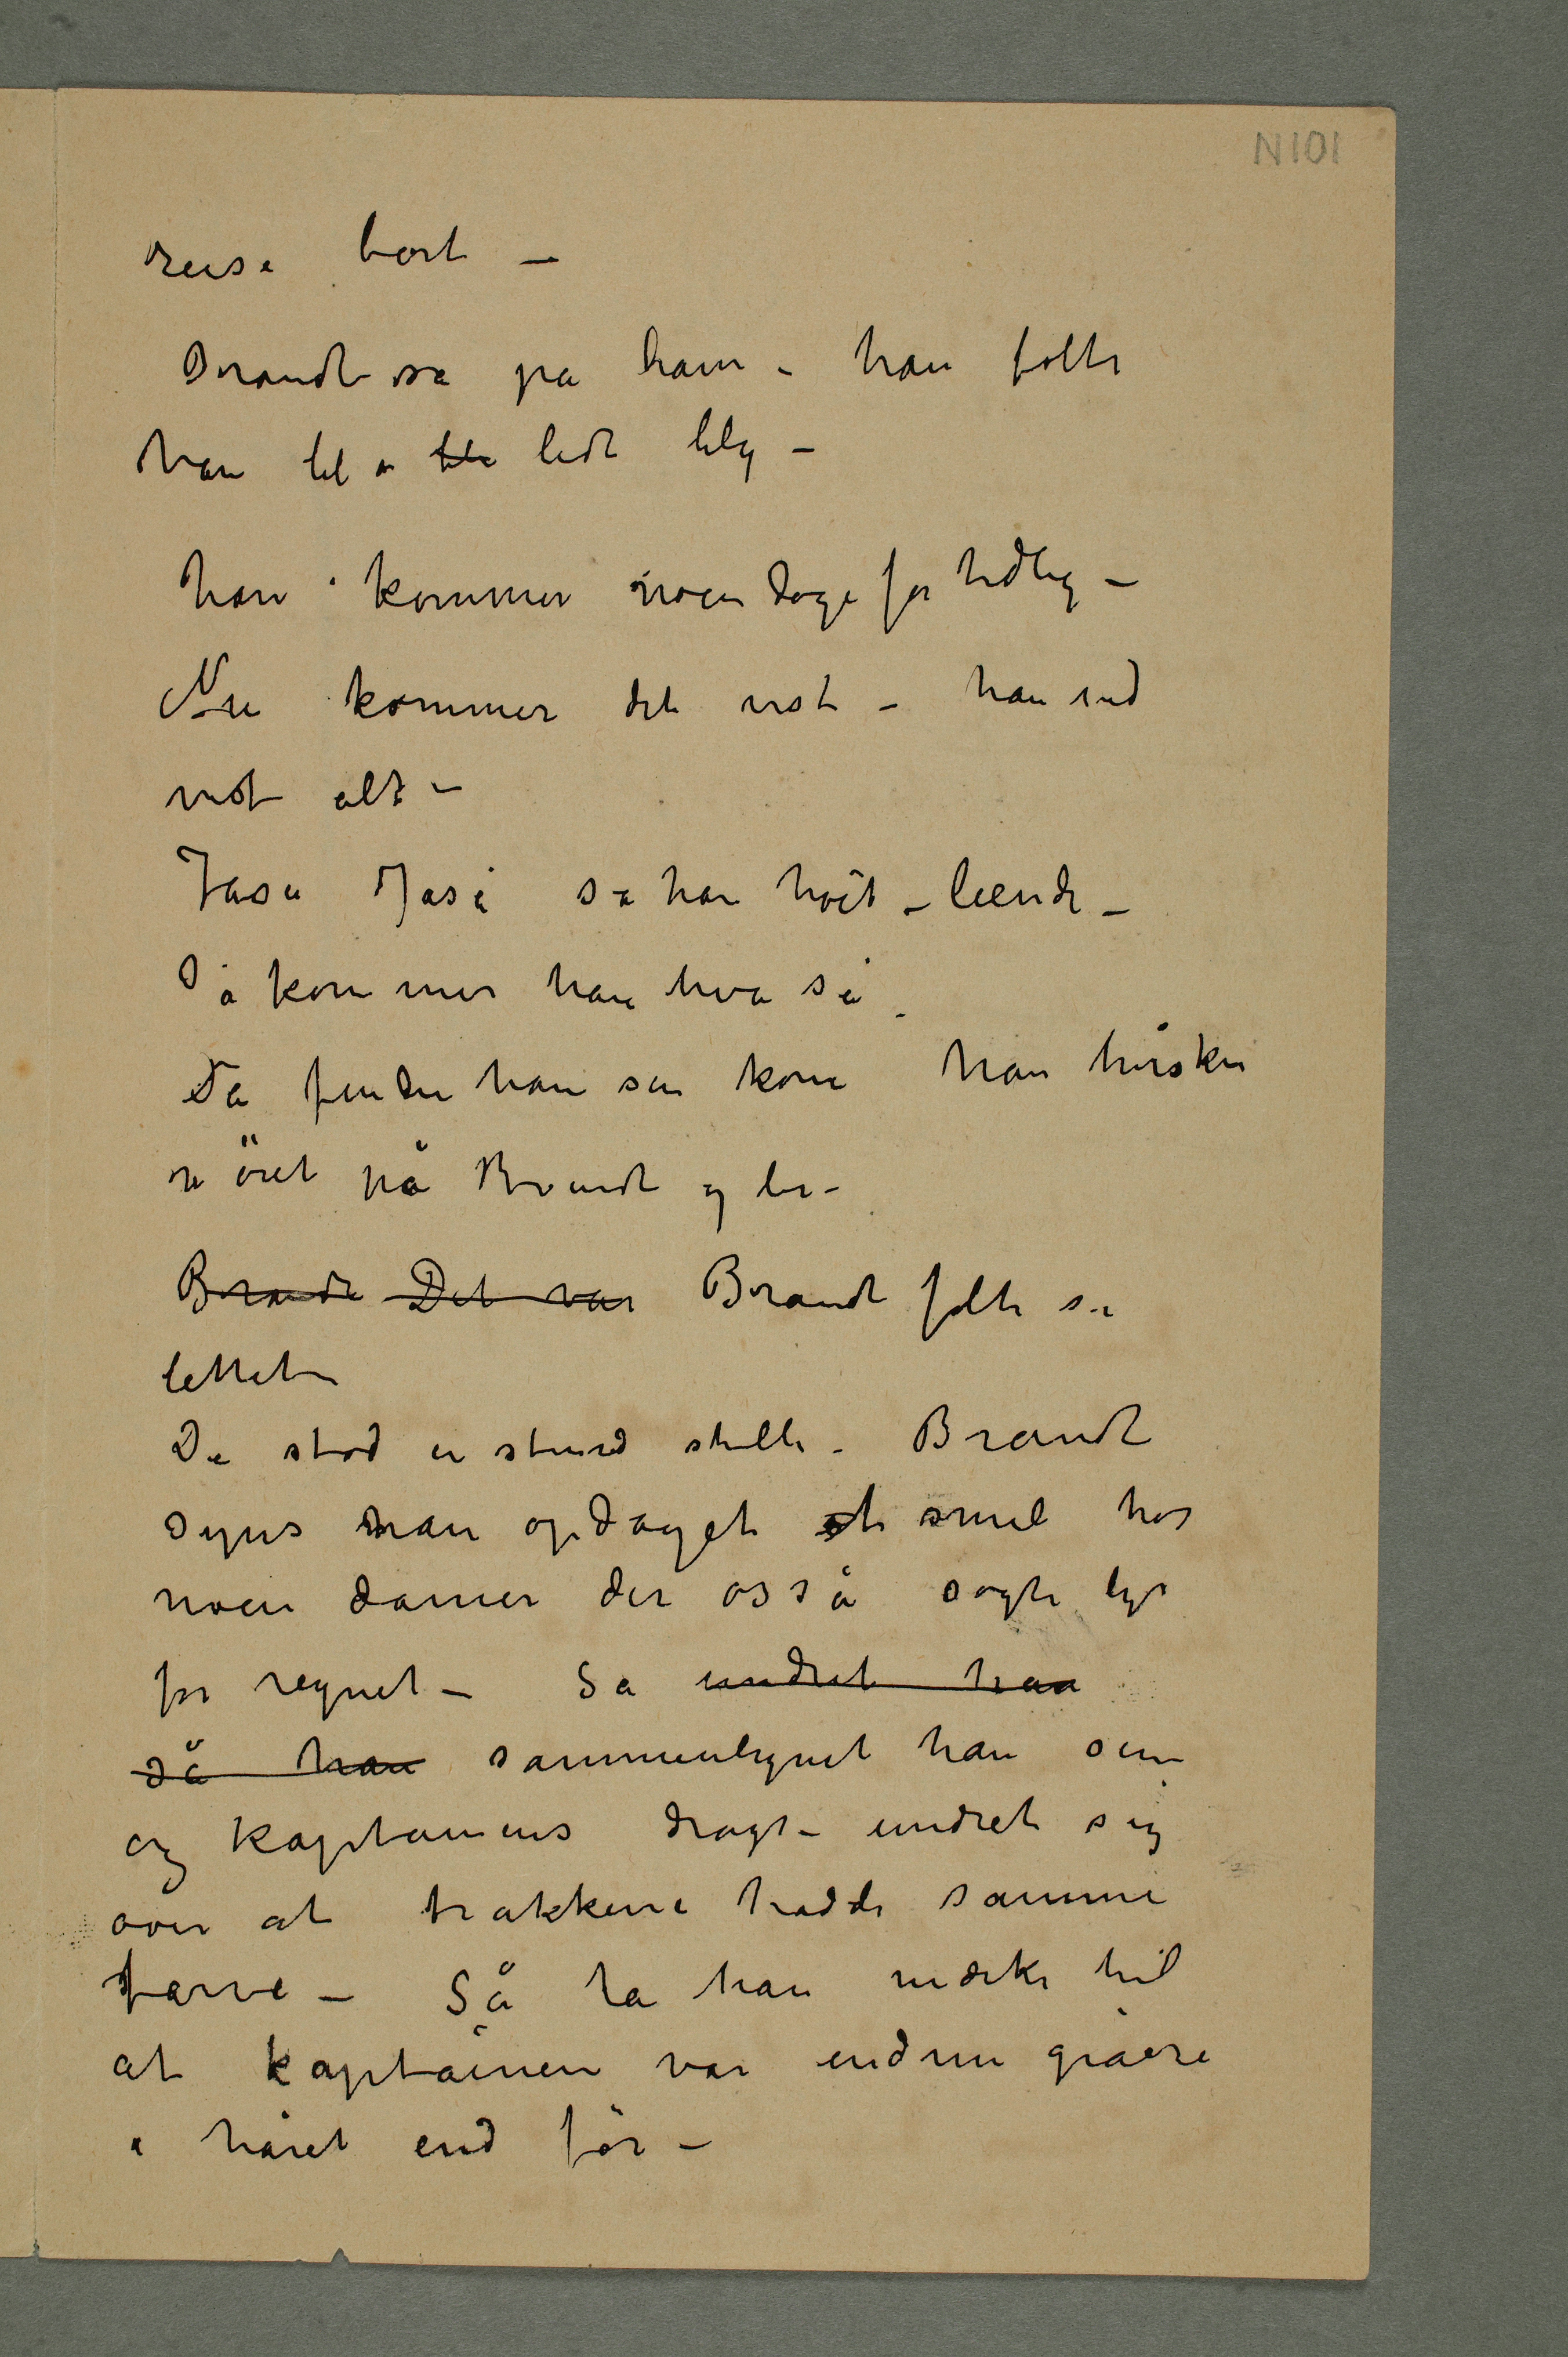 N101
reise bort –
Brandt så på ham – han følte
han ble ble lidt bleg –
han kommer noen dage for tidlig –
Nu kommer det visst – han ved
vist alt –
Jasa Jaså sa han høit – leende –
Så kommer han hva så –
Da finder han sin kone han hvisker
i öret på Brandt og ler –
Brandt Det var Brandt følte sig
lettet –
De stod en stund stille – Brandt
syns han opdaget et smil hos
noen damer der osså søgte ly
for regnet – Så undret han
så han sammenlignet han sin
og kaptainens dragt – undret sig
over at frakkerne hadde samme
farve – Så la han mærke til
at kaptainen var endnu gråere
i håret end för –